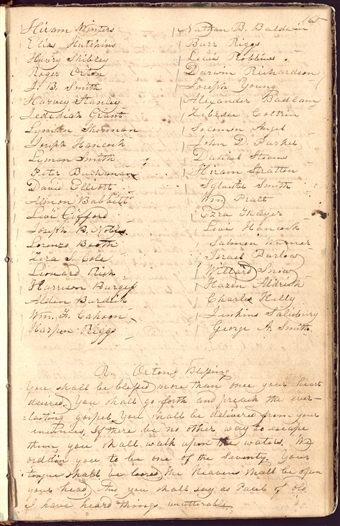 165
Hiram Winters Nathan B. Baldwin
Elias Hutchins Burr Riggs
Henry Shibley Lewis Robbins
Roger Orton Darwin Richardson
J. B. Smith Joseph Young
Harvey Stanley Alexander Badlam
Zedediah Grant Zebedee Coltrin
Lyman Sherman Solomon Angel
Joseph Hancock John D. Parker
Lyman Smith Daniel Stearns
Peter Buchanan Hiram Stratton
David Elliott Sylvester Smith
Almon Babbitt Wm Pratt
Levi Gifford Ezra Thayer
Joseph B. Noble Levi Hancock
Lorenzo Booth Salmon Warner
Zera S. Cole Israel Barlow
Leonard Rich Willard Snow
Harrison Burgess Hazen Aldrich
Alden Burdick Charles Kelly
Wm. F. Cahoon Jenkins Salisbury
Harpin Riggs George A. Smith
R. Orton's Blessing
You shall be blessed more than once your heart
desires. You shall go forth and preach the ever-
lasting gospel. You shall be delivered from your
enemies. If there be no other way to escape
them you shall walk upon the waters. We
ordain you to be one of the seventy. Your
tongue shall be loosed, the Heavens shall be open
your head, and you shall say, as Paul of old
I have heard things unutterable.